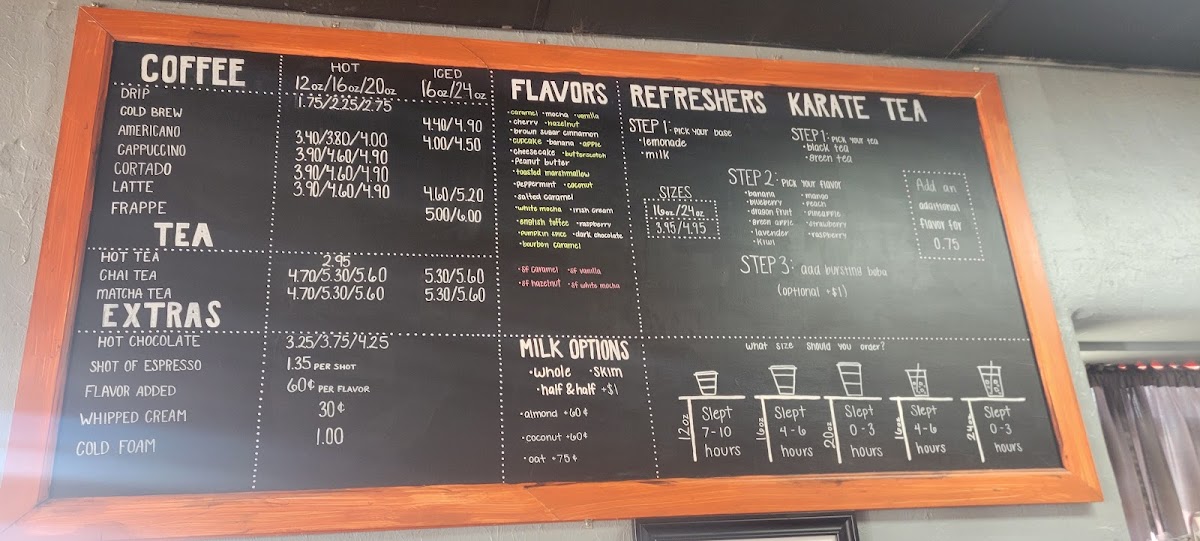 COFFEE
HOT
12oz/16oz/20oz
ICED
16oz/24oz
DRIP
1.75/2.25/2.75
COLD BREW
4.40/4.90
AMERICANO
3.40/3.80/4.00
4.00/4.50
CAPPUCCINO
3.90/4.60/4.90
CORTADO
3.90/4.60/4.90
LATTE
3.90/4.60/4.90
4.60/5.20
FRAPPE
5.00/6.00
TEA
HOT TEA
2.95
CHAI TEA
4.70/5.30/5.60
5.30/5.60
MATCHA TEA
4.70/5.30/5.60
5.30/5.60
EXTRAS
HOT CHOCOLATE
3.25/3.75/4.25
SHOT OF ESPRESSO
1.35 PER SHOT
FLAVOR ADDED
60¢ PER FLAVOR
WHIPPED CREAM
30¢
COLD FOAM
1.00
FLAVORS
•caramel •mocha •vanilla
•cherry •hazelnut
•brown sugar cinnamon
•cupcake •banana •apple
•cheesecake •butterscotch
•Peanut butter
•toasted marshmallow
•peppermint •coconut
•salted caramel
•white mocha •irish cream
•english toffee •raspberry
•pumpkin spice •dark chocolate
•bourbon caramel
•sf caramel •sf vanilla
•sf hazelnut •sf white mocha
MILK OPTIONS
•whole •skim
•half & half +$1
•almond +60¢
•coconut +60¢
•oat +75¢
REFRESHERS
STEP 1: PICK your base
•lemonade
•milk
KARATE TEA
STEP 1: PICK your tea
•black tea
•green tea
SIZES
16oz/24oz
3.95/4.95
STEP 2: PICK your flavor
•banana
•blueberry
•dragon fruit
•green apple
•lavender
•kiwi
•mango
•peach
•pineapple
•strawberry
•raspberry
Add an
additional
flavor for
0.75
STEP 3: add bursting boba
(optional +$1)
What size should you order?
12oz
Slept
7-10
hours
16oz
Slept
4-6
hours
20oz
Slept
0-3
hours
16oz
Slept
4-6
hours
24oz
Slept
0-3
hours